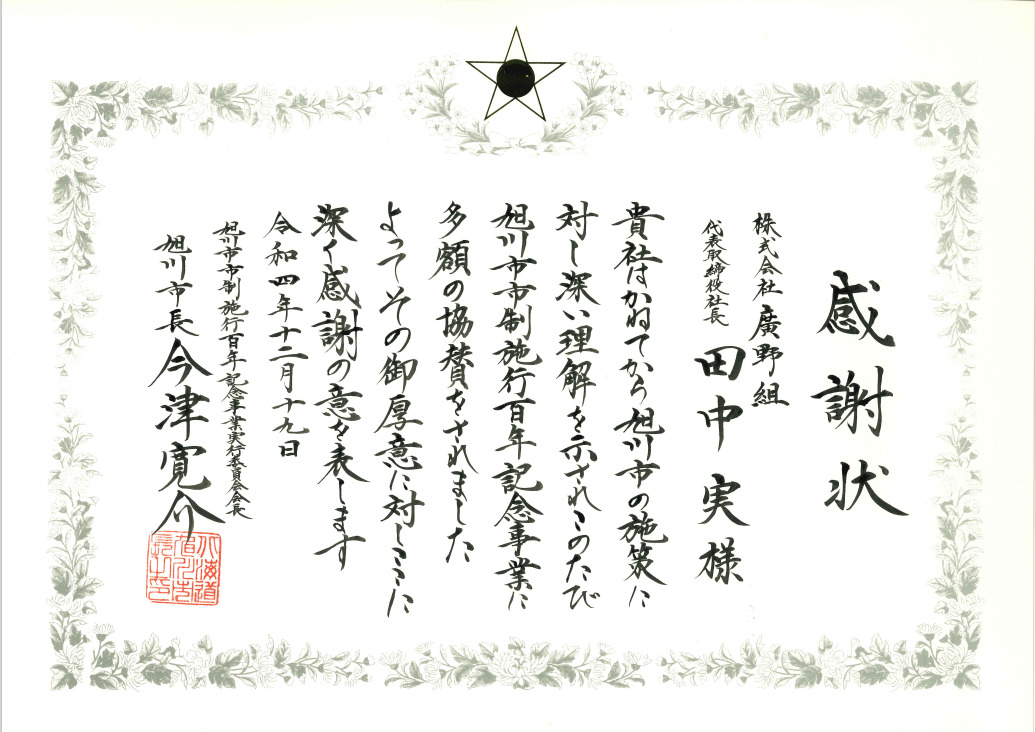 感謝状
株式会社廣野組
代表取締役社長
田中実様
貴社はかねてから旭川市の施策に
対し深い理解を示されこのたび
旭川市市制施行百年記念事業に
多額の協賛をされました
よってその御厚意に対しここに
深く感謝の意を表します
令和四年十二月十九日
旭川市市制施行百年記念事業実行委員会会長
旭川市長今津寛介
北海道
旭川市
長之印